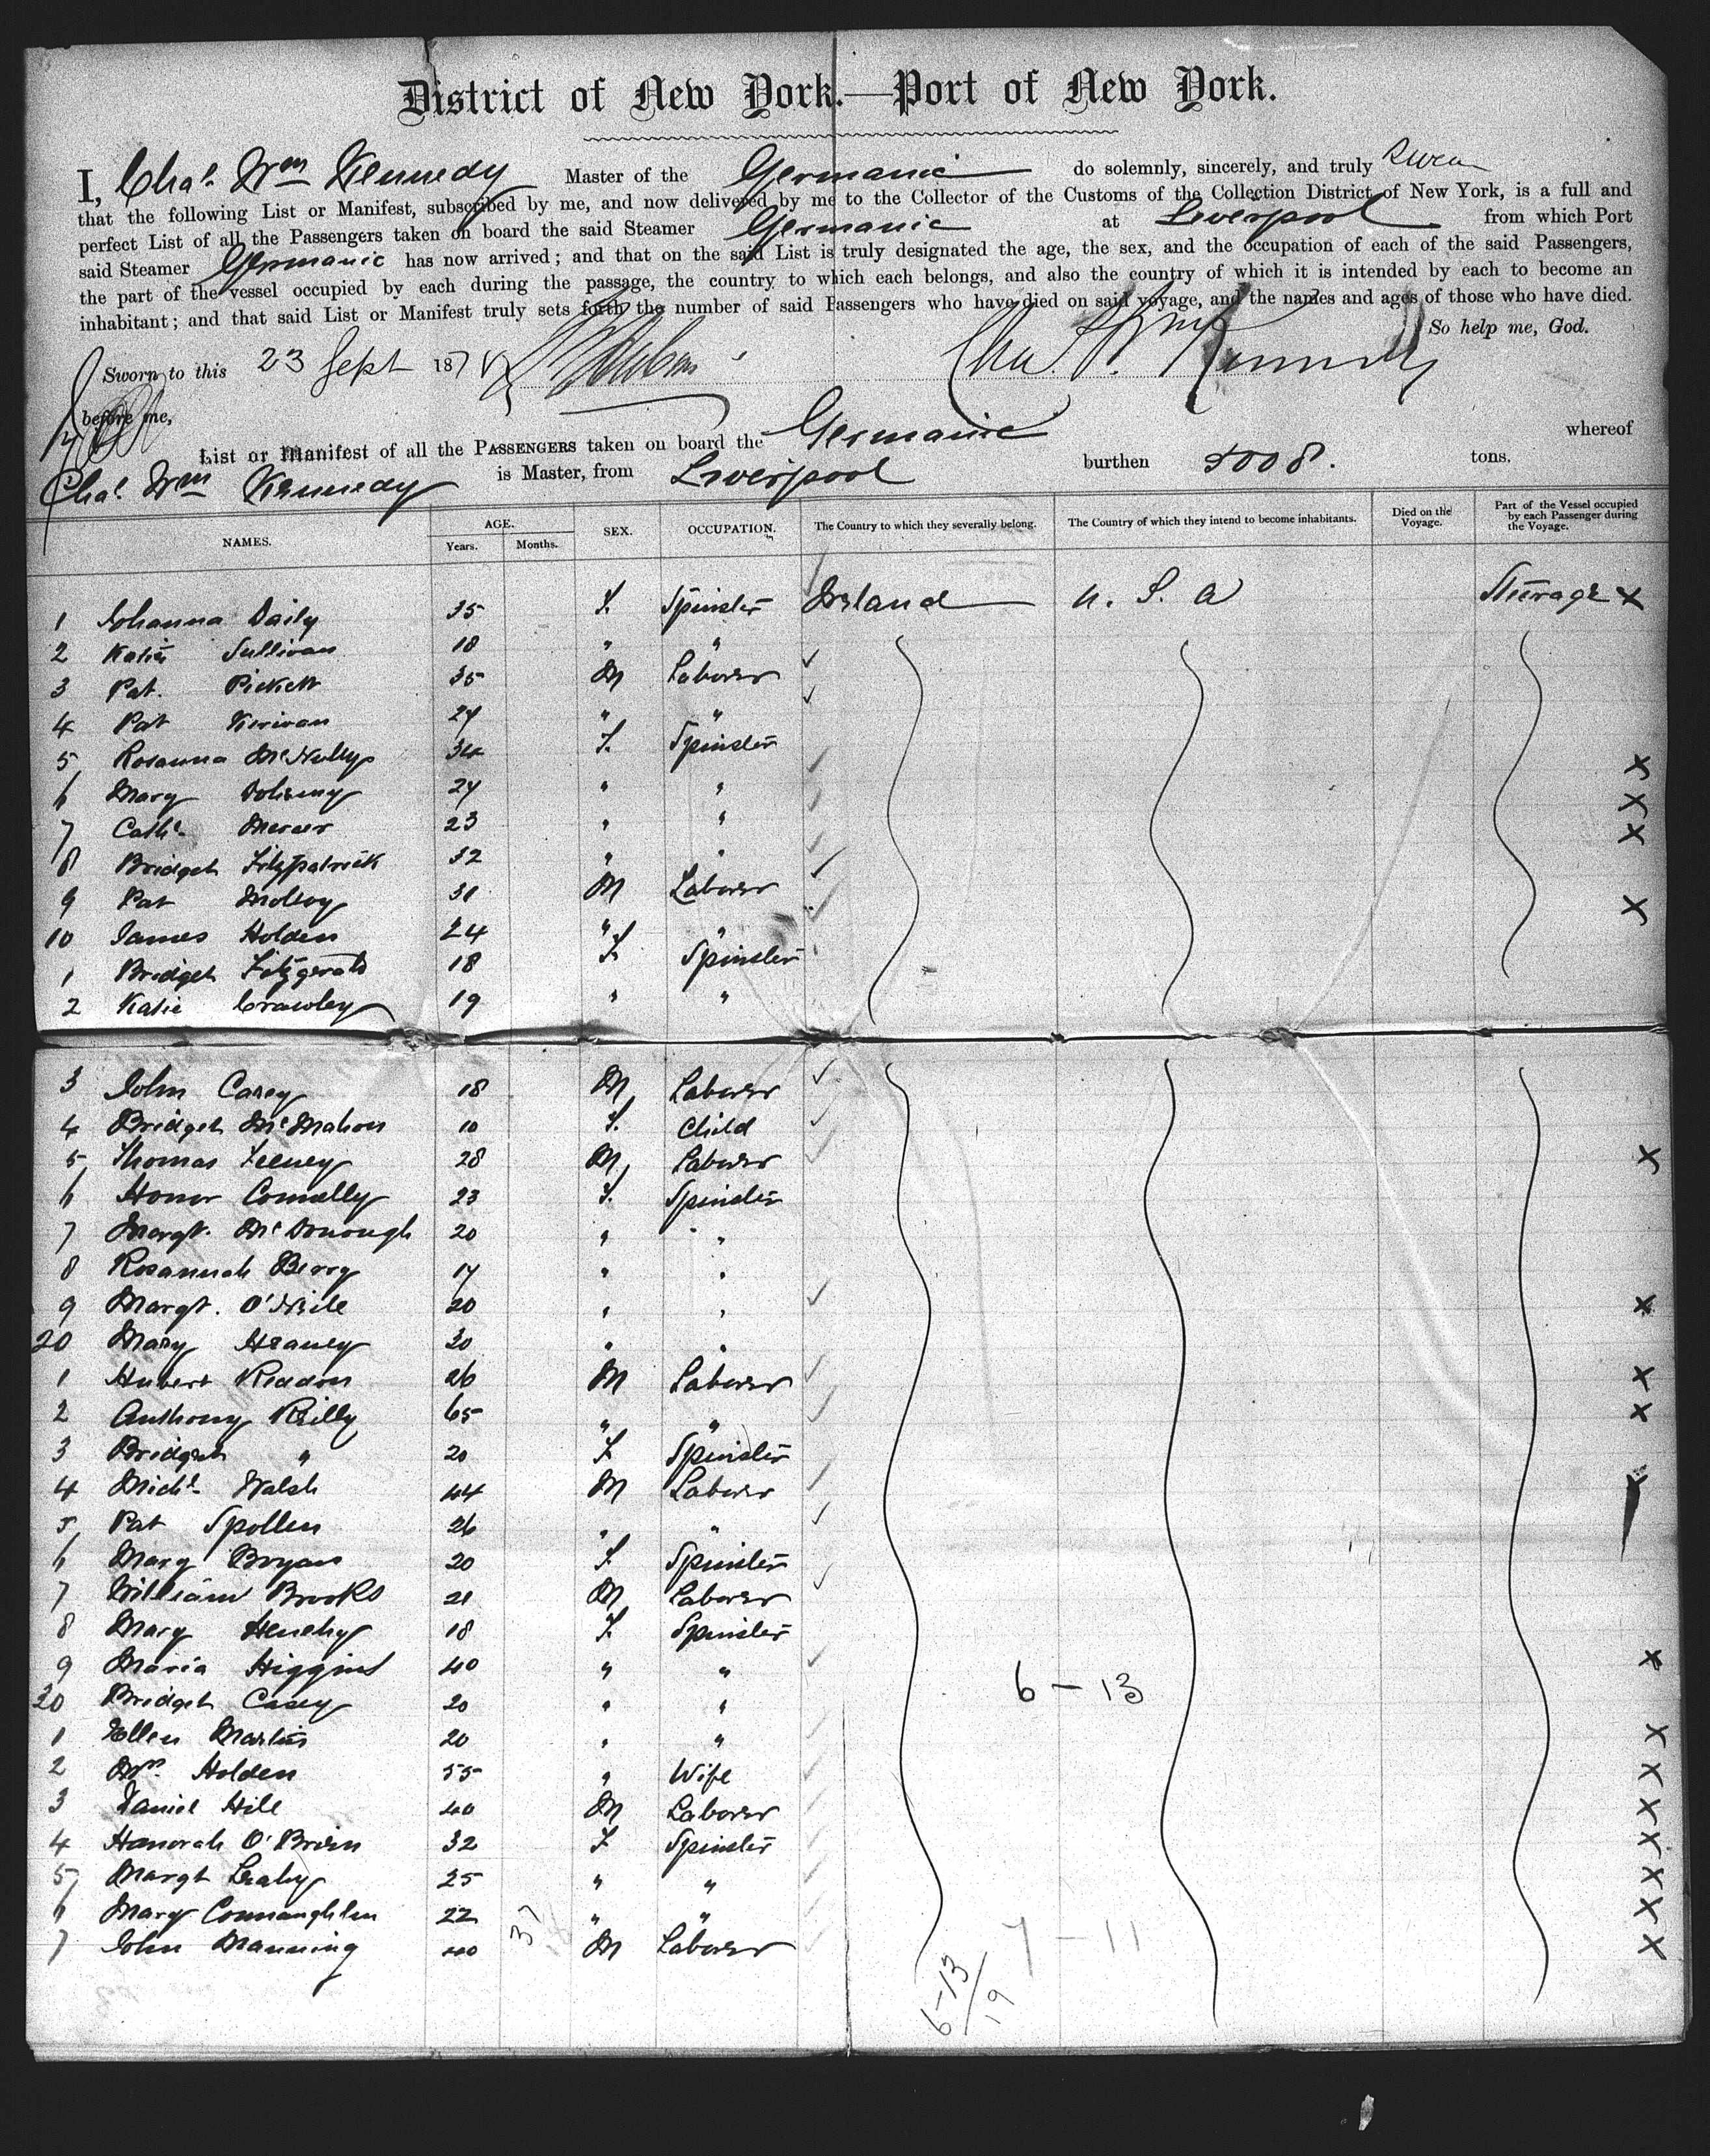 District of New York.—Port of New York.
I, Chas. Wm Kennedy Master of the Germanic do solemnly, sincerely, and truly swear
that the following List or Manifest, subscribed by me, and now delivered by me to the Collector of the Customs of the Collection District of New York, is a full and
perfect List of all the Passengers taken on board the said Steamer Germanic at Liverpool from which Port
said Steamer Germanic has now arrived; and that on the said List is truly designated the age, the sex, and the occupation of each of the said Passengers,
the part of the vessel occupied by each during the passage, the country to which each belongs, and also the country of which it is intended by each to become an
inhabitant; and that said List or Manifest truly sets forth the number of said Passengers who have died on said voyage, and the names and ages of those who have died.
So help me, God.
Sworn to this 23 Sept 187 Chas. Wm Kennedy
before me,
List or Manifest of all the PASSENGERS taken on board the Germanic whereof
Chas. Wm Kennedy is Master, from Liverpool burthen 5008. tons.
NAMES. AGE. Years. Months. SEX. OCCUPATION. The Country to which they severally belong. The Country of which they intend to become inhabitants. Died on the Voyage. Part of the Vessel occupied by each Passenger during the Voyage.
1 Johanna Daily 35 F. Spinster Ireland U. S. A Steerage X
2 Katie Sullivan 18 " "
3 Pat. Pickett 35 M Laborer
4 Pat Kerivan 24 " "
5 Rosanna McNulty 34 F. Spinster X
6 Mary Doheny 24 " " X
7 Cathe. Mercer 23 " " X
8 Bridget Fitzpatrick 32 " "
9 Pat Molloy 31 M Laborer X
10 James Holden 24 " "
1 Bridget Fitzgerald 18 F. Spinster
2 Katie Crawley 19 " "
3 John Casey 18 M Laborer
4 Bridget McMahon 10 F. Child
5 Thomas Feeney 28 M Laborer X
6 Honor Connelly 23 F. Spinster
7 Margt. McDonough 20 " "
8 Rosannah Berry 17 " "
9 Margt. O'Neile 20 " " X
20 Mary Heaney 30 " "
1 Hubert Reddon 26 M Laborer X
2 Anthony Reilly 65 " " X
3 Bridget " 20 F Spinster
4 Michl. Walsh 44 M Laborer X
5 Pat Spollen 26 " "
6 Mary Bryan 20 F. Spinster
7 William Brooks 21 M Laborer
8 Mary Henehy 18 F. Spinster
9 Maria Higgins 40 " " X
30 Bridget Casey 20 " "
6 - 13
1 Ellen Martin 20 " " X
2 Mrs. Holden 55 " Wife X
3 Daniel Hile 40 M Laborer X
4 Honorah O'Brien 32 F Spinster X
5 Margt Leahy 25 " " X
6 Mary Connaughlen 22 " " X
7 John Manning 40 M Laborer X
37
7 - 11
6-13/19